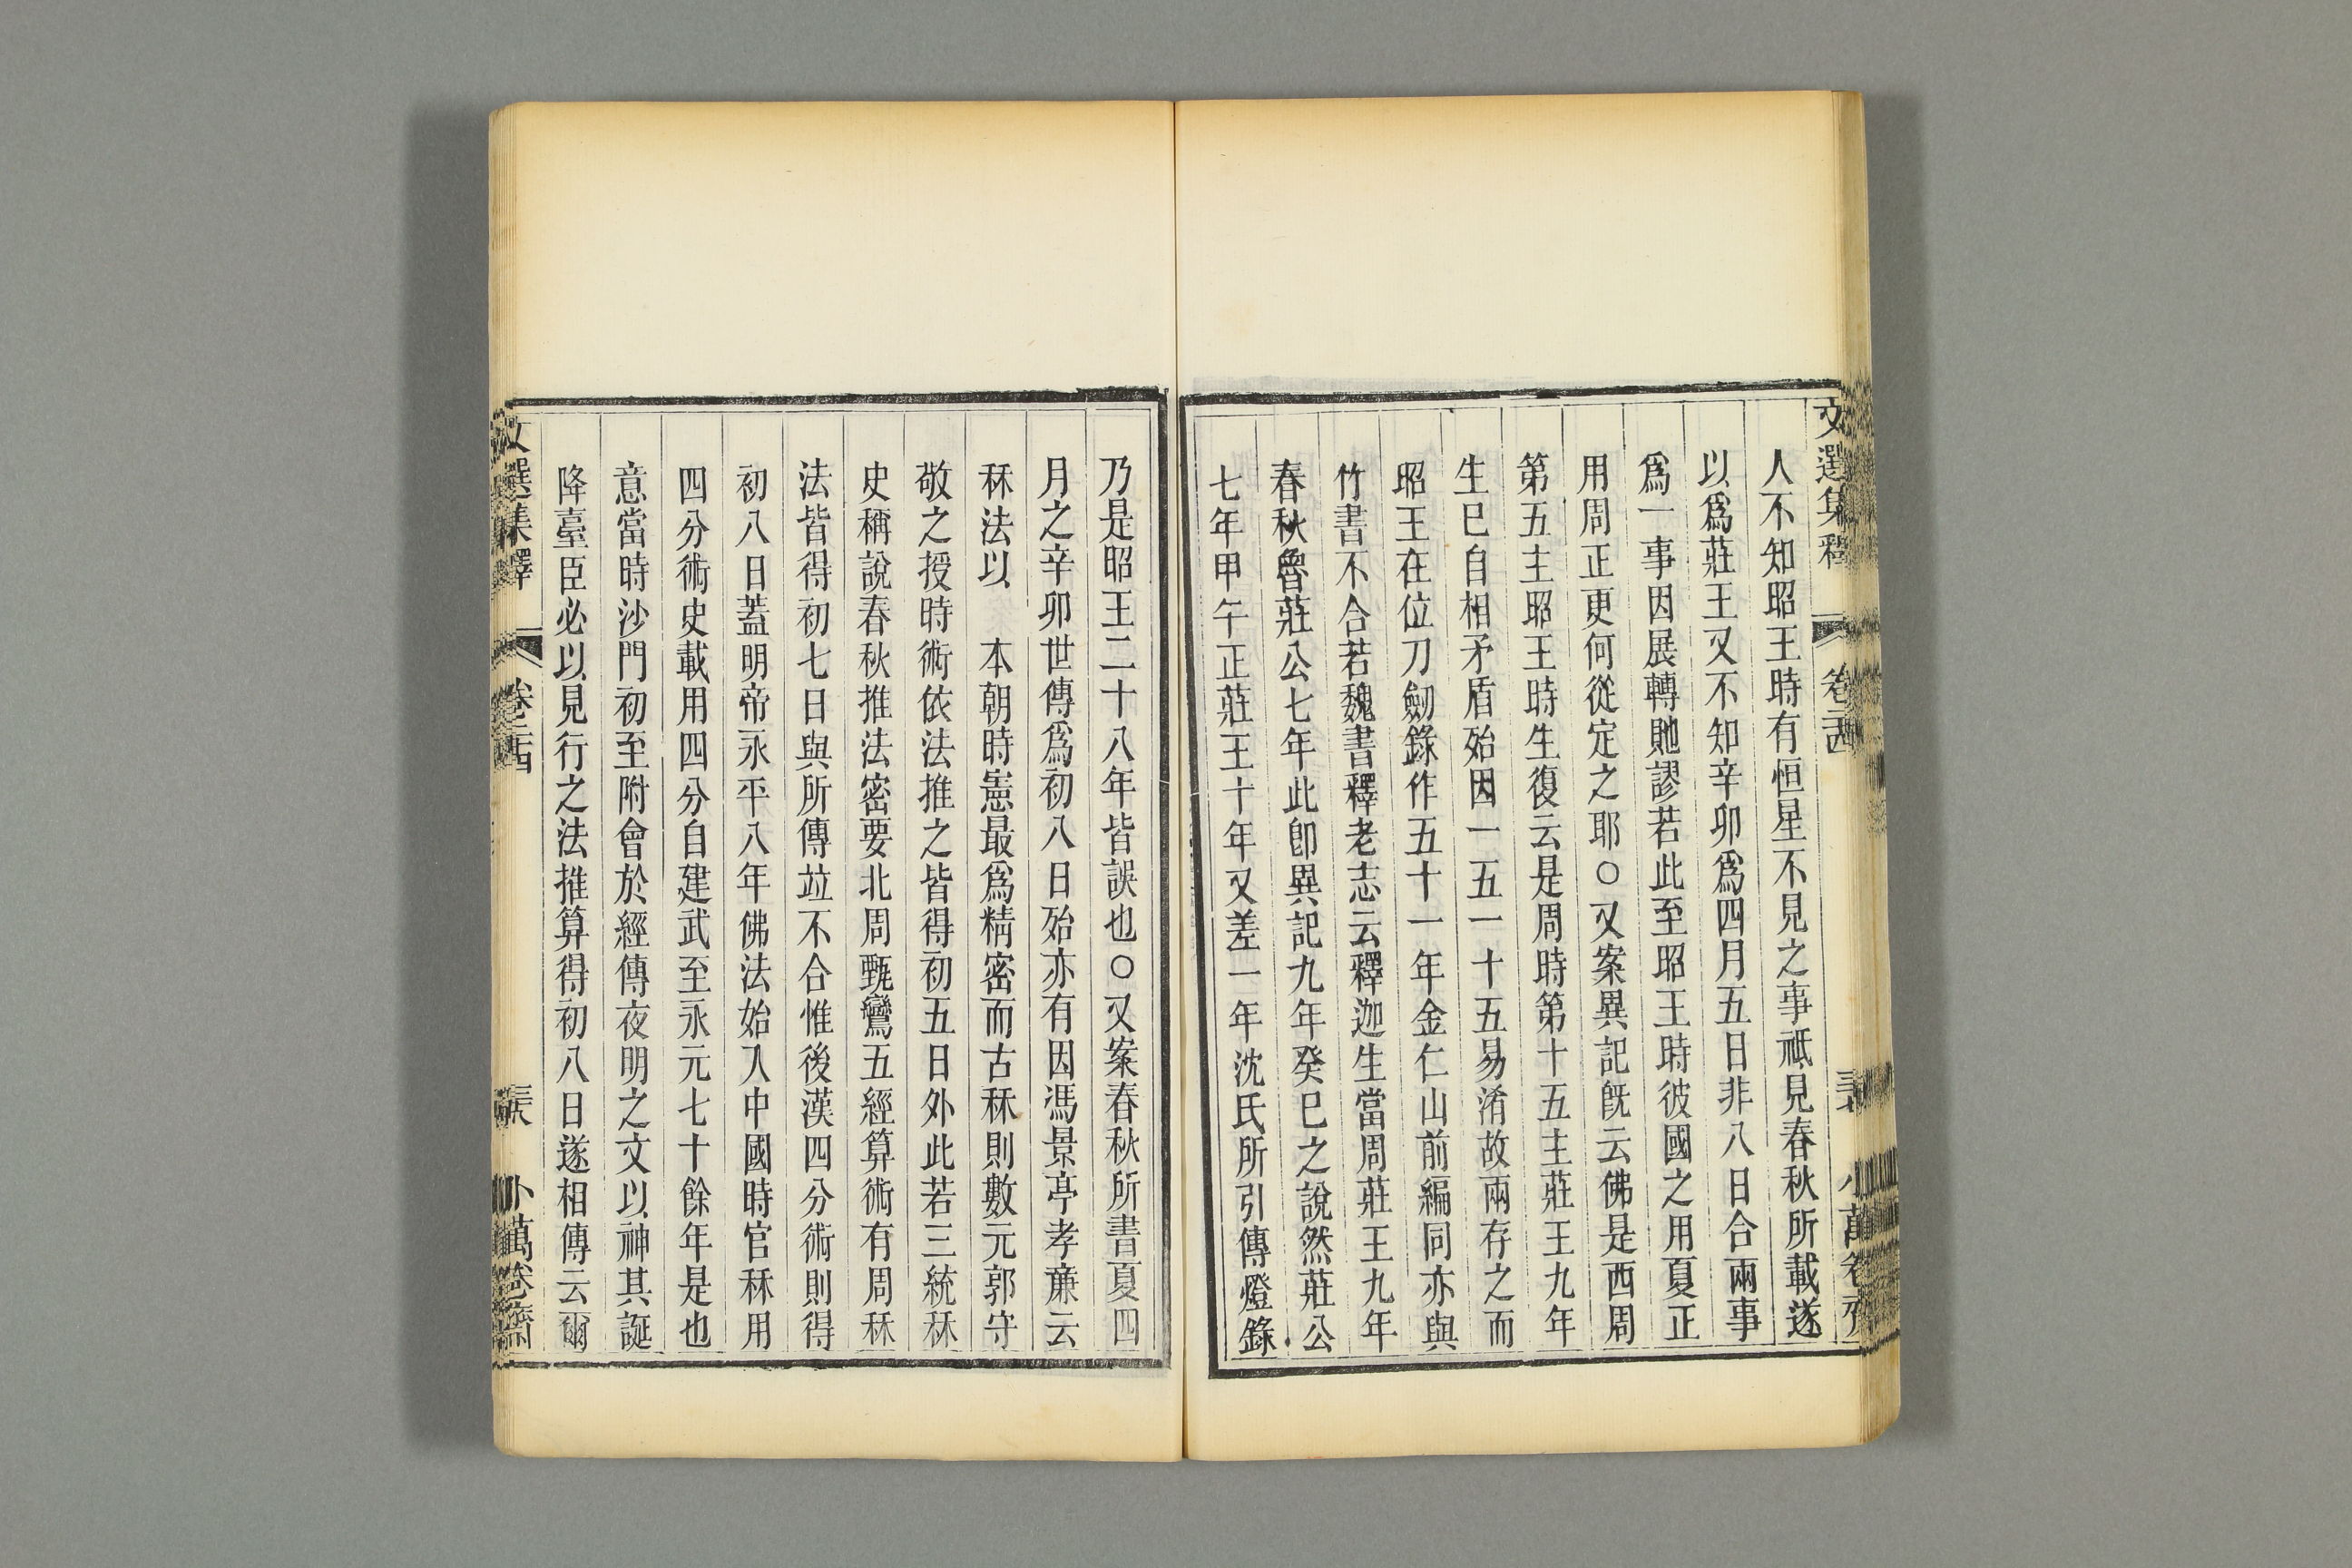 文選集釋 卷二十四 三十七 小萬卷齋
人不知昭王時有恒星不見之事祗見春秋所載遂
以爲莊王又不知辛卯爲四月五日非八日合兩事
爲一事因展轉貤謬若此至昭王時彼國之用夏正
用周正更何從定之耶○又案異記旣云佛是西周
第五主昭王時生復云是周時第十五主莊王九年
生已自相矛盾殆因一五一十五易淆故兩存之而
昭王在位刀劒錄作五十一年金仁山前編同亦與
竹書不合若魏書釋老志云釋迦生當周莊王九年
春秋魯莊公七年此卽異記九年癸巳之說然莊公
七年甲午正莊王十年又差一年沈氏所引傳燈錄
乃是昭王二十八年皆誤也○又案春秋所書夏四
月之辛卯世傳爲初八日殆亦有因馮景亭孝廉云
秝法以 本朝時憲最爲精密而古秝則數元郭守
敬之授時術依法推之皆得初五日外此若三統秝
史稱說春秋推法密要北周甄鸞五經算術有周秝
法皆得初七日與所傳竝不合惟後漢四分術則得
初八日蓋明帝永平八年佛法始入中國時官秝用
四分術史載用四分自建武至永元七十餘年是也
意當時沙門初至附會於經傳夜明之文以神其誕
降臺臣必以見行之法推算得初八日遂相傳云爾
文選集釋 卷二十四 三十八 小萬卷齋